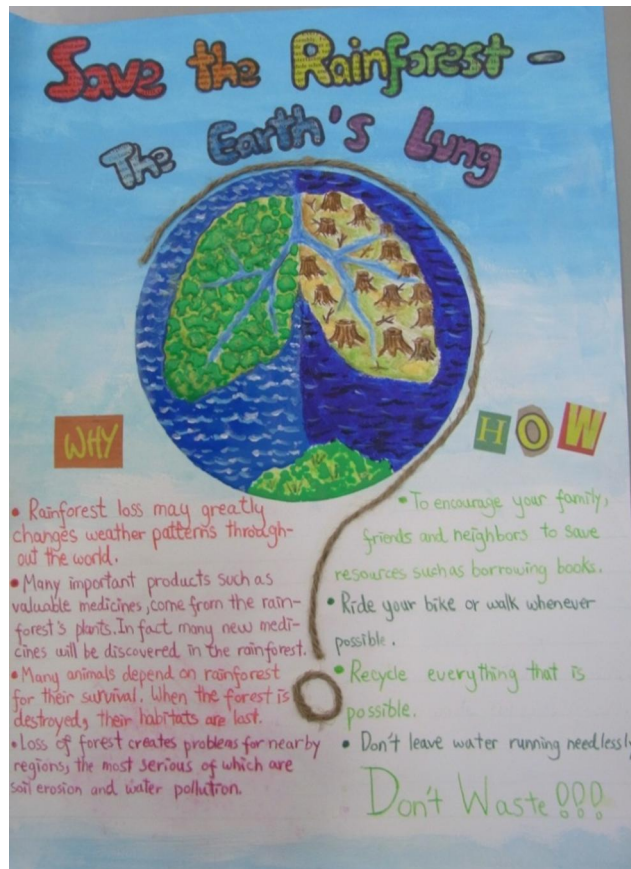 Save the Rainforest -
The Earth's Lung
WHY
• Rainforest loss may greatly
changes weather patterns through-
out the world.
• Many important products such as
valuable medicines, come from the rain-
forest's plants. In fact many new medi-
cines will be discovered in the rainforest.
• Many animals depend on rainforest
for their survival. When the forest is
destroyed, their habitats are last.
• Loss of forest creates problems for nearby
regions, the most serious of which are
soil erosion and water pollution.
HOW
• To encourage your family,
friends and neighbors to save
resources such as borrowing books.
• Ride your bike or walk whenever
possible.
• Recycle everything that is
possible.
• Don't leave water running needlessly
Don't Waste !!!